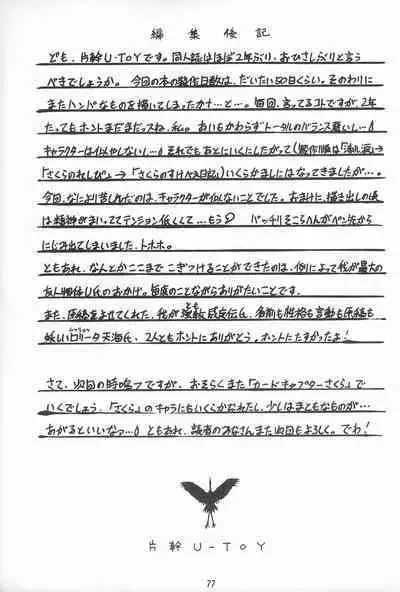 編集後記
ども、片幹U-TOYです。同人誌はほぼ2年ぶり、おひさしぶりと言う
べきでしょうか。今回の本の製作日数は、だいたい50日くらい。そのわりに
またハンパなものを描いてしまったカナ…と…。毎回、言ってるコトですが、2年
たってもホントまだまだっスね、私。あいもかわらずトータルのバランス悪いし…
キャラクターは似やしないし…それでもあとにいくにしたがって(製作順は
「さくらのれしぴ」→「さくらのすけべえ日記」)いくらかましにはなってきましたが…。
今回、なにより苦しんだのは、キャラクターが似ないことでした。おまけに、描き出しの頃
は精神がまいっててテンション低くして…もう バッチリそこらへんがペン先から
にじみ出てしまいました、トホホ。
ともあれ、なんとかここまでこぎつけることができたのは、例によって我が最大の
友人 U氏のおかげ。毎度のことながらありがたいことです。
また、原稿をよせてくれた、我が 伝氏、名前も性格も言動も原稿も
妖しいロリータ天海氏、2人ともホントにありがとう。ホントにたすかったよ!
さて、次回の時 ですが、おそらくまた「カードキャプターさくら」で
いくでしょう。「さくら」のキャラにもいくらかなれたし、少しはまともなものが…
あがるといいなっ… ともあれ、読者のみなさんまた次回もよろしく。でわ!
片幹U-TOY
77